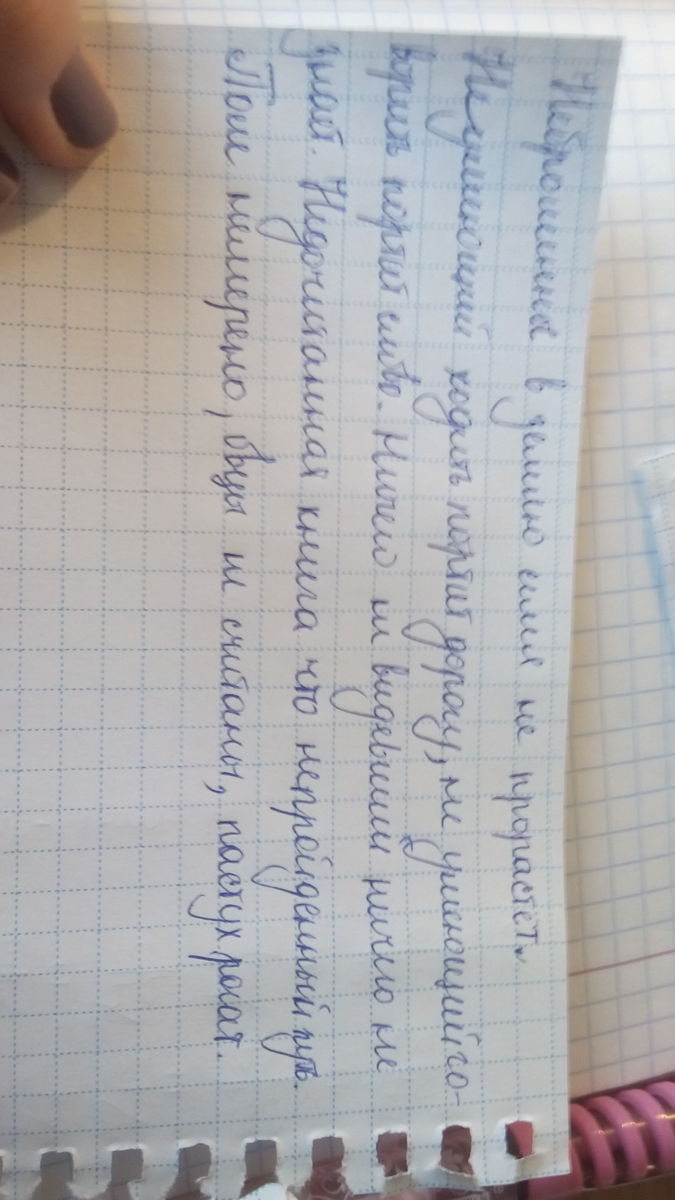 Неброшенное в землю семя не прорастет.
Неумеющий ходить портит дорогу, не умеющий го-
ворить портит слово. Ничего не видевший ничего не
знает. Недочитанная книга что непройденный путь.
Поле немерено, овцы не считаны, пастух рогат.